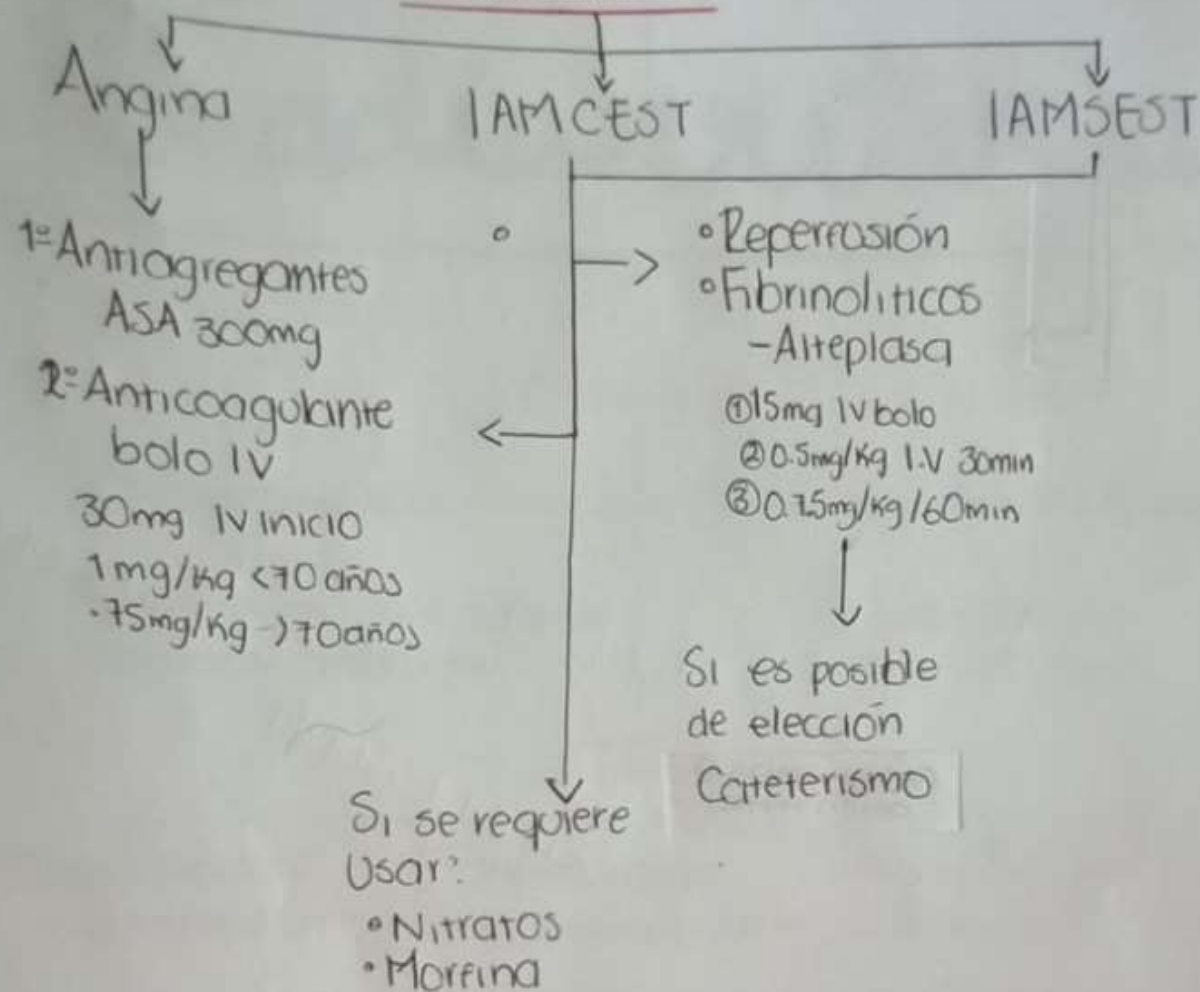 Angina
IAMCEST
IAMSEST
1º Antiagregantes
ASA 300mg
2º Anticoagulante
bolo IV
30mg IV inicio
1mg/kg <70 años
.75mg/kg ->70años
• Reperfusión
• Fibrinoliticos
- Alteplasa
① 15mg IV bolo
② 0.5mg/kg I.V 30min
③ 0.75mg/kg/60min
Si es posible
de elección
Cateterismo
Si se requiere
Usar:
• Nitratos
• Morfina